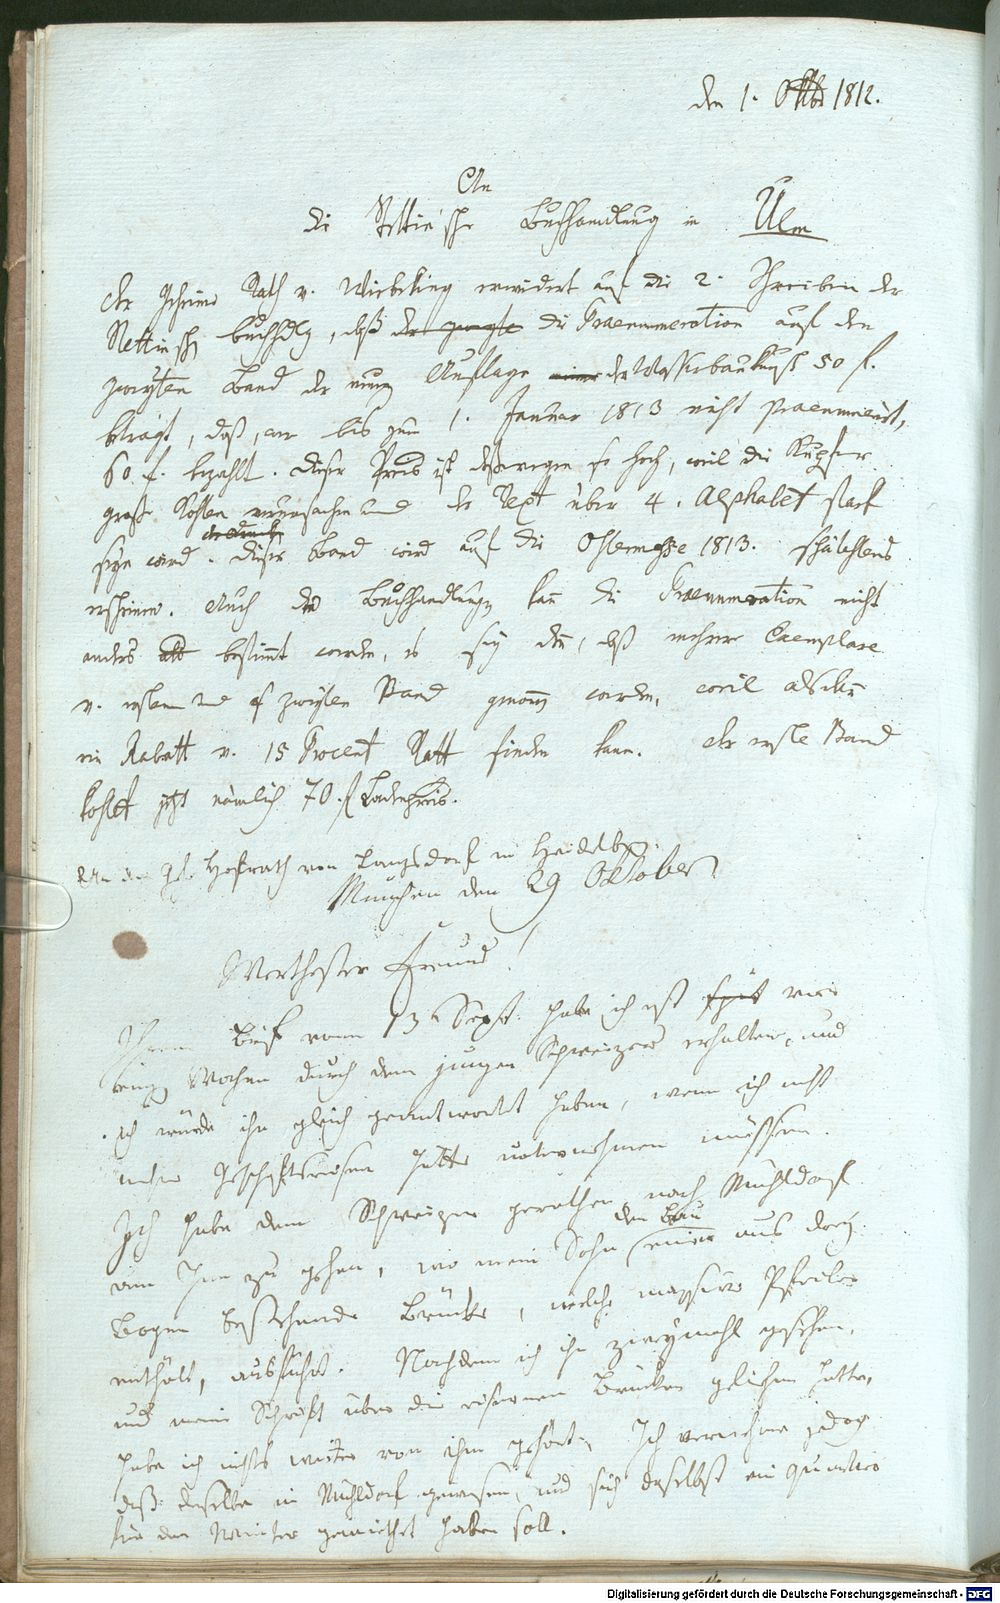 den 1. Oktbr 1812.
An
die Stettin'sche Buchhandlung in Ulm
Der Geheime Rath v. Wiebeking erwidert auf die 2. Schreiben der
Stettinsch Buchhdlg, daß die Praenumeration auf den
zweyten Band der neuen Auflage der Wasserbaukunst 50 f.
beträgt, daß, wer bis zum 1. Januar 1813 nicht praenumerirt,
60 f. bezahlt. Dieser Preis ist deßwegen so hoch, weil die Kupfer
große Kosten verursachen und der Text über 4. Alphabet stark
seyn wird. Dieser Band wird auf die Ostermesse 1813. spätestens
erscheinen. Auch den Buchhandlungen kann die Praenumeration nicht
anders bestimmt werden, es sey denn, daß mehrere Exemplare
v. ersten und zweyten Band genomen werden, weil alsdann
ein Rabatt v. 15 Procent statt finden kann. Der erste Band
kostet jetzt nämlich 70. f Ladenpreis.
An den Hofrath von Langsdorf in Heidelbg.
München den 29 Oktober
Werthester Freund!
Ihren Brief vom 13 Sept. habe ich erst vor
einig Wochen durch den jungen Schweizer erhalten, und
ich würde ihn gleich geantwortet haben, wenn ich nicht
mehrere Geschäftsreisen hätte unternehmen müssen.
Ich habe dem Schweizer gerathen, nach Mühldorf
am Inn zu gehen, wo mein Sohn den Bau einer aus drey
Bogen bestehende Brücke, welche massive Pfeiler
enthält, ausführt. Nachdem ich ihn zweymahl gesehen,
und meine Schrift über die eisernen Brücken geliehen hatte,
habe ich nichts weiter von ihm gehört. Ich vernehme jedoch
daß derselbe in Mühldorf gewesen, und sich daselbst ein Quartier
für den Winter gemiethet haben soll.
Digitalisierung gefördert durch die Deutsche Forschungsgemeinschaft - DFG